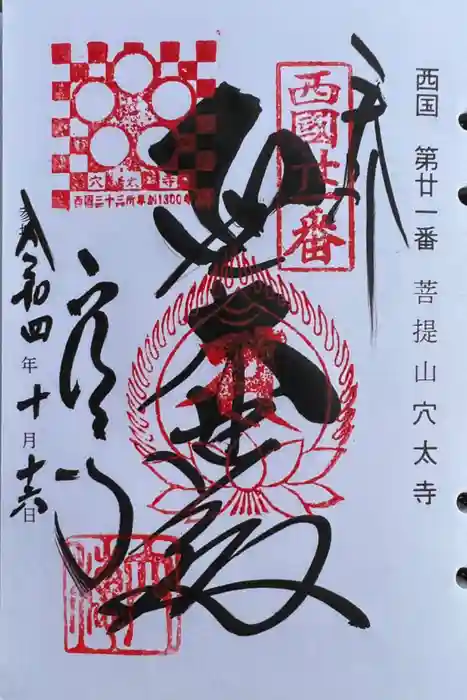 西国 第廿一番 菩提山穴太寺
西國廿一番
奉拝
聖大悲殿
穴太寺
穴太寺
西国三十三所草創1300年
令和四年十月十六日